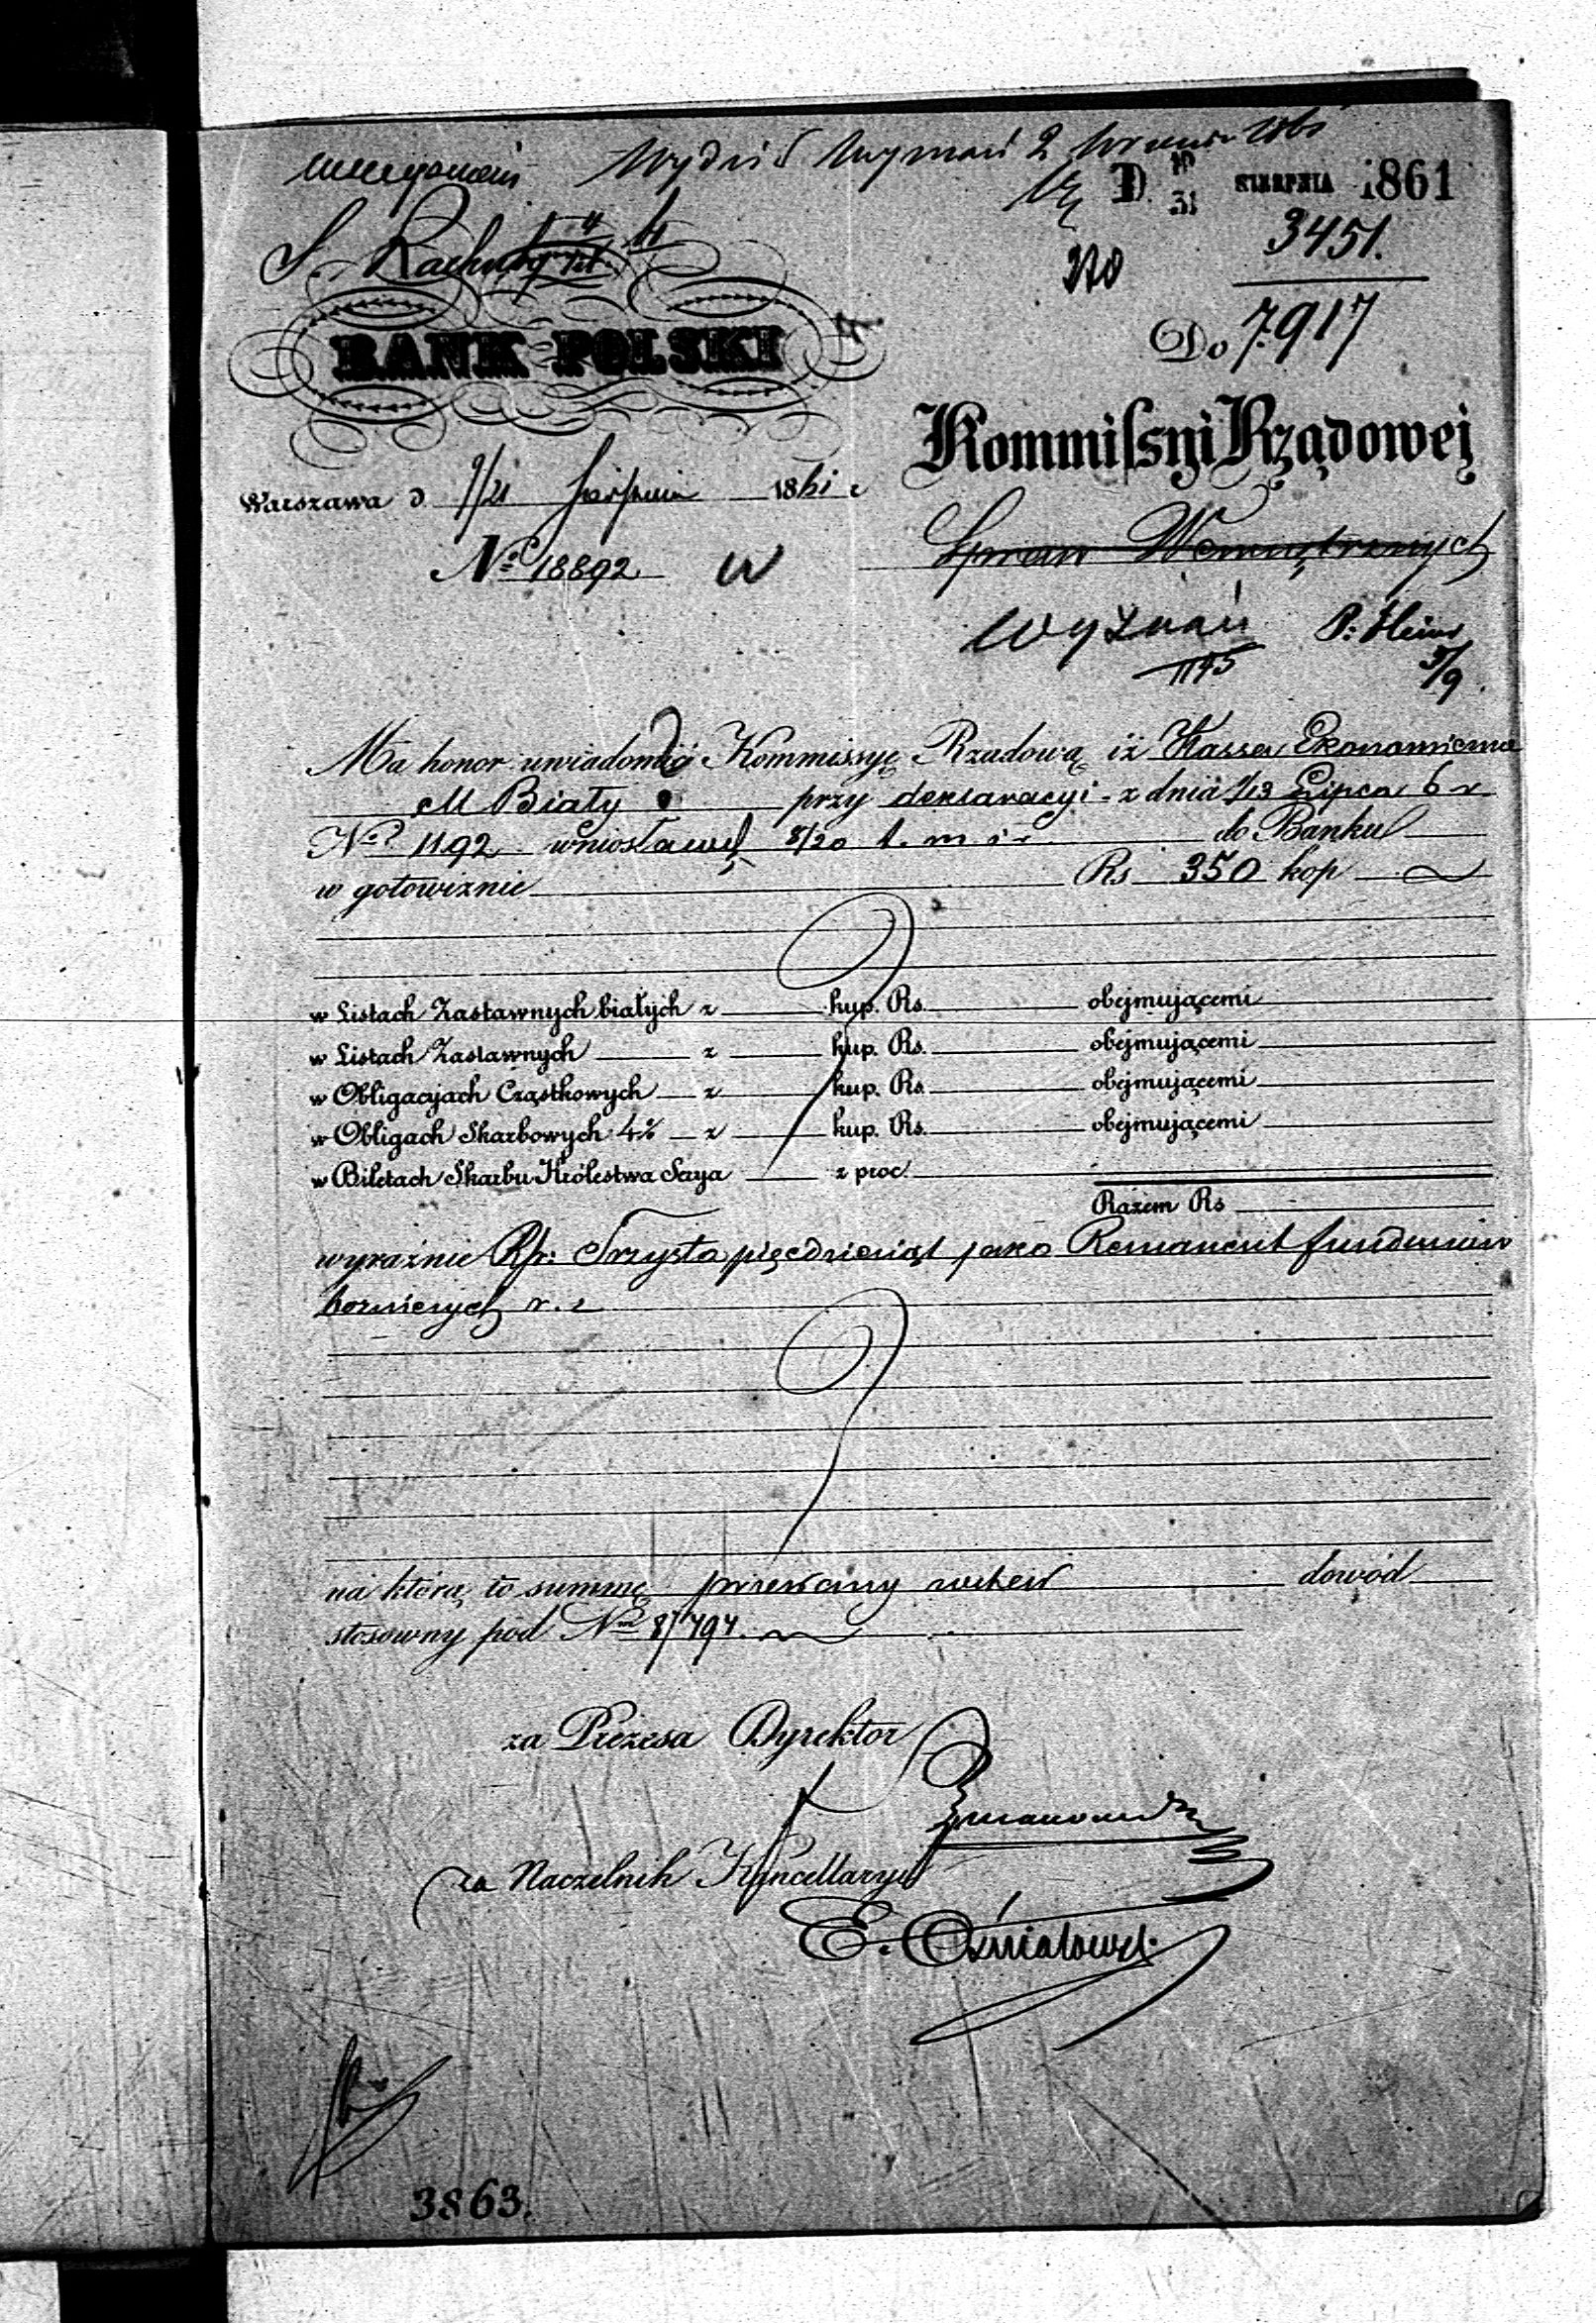 Wydział Wyznań 2
D. 19/31 SIERPNIA 1861
3451.
S. Rach
BANK POLSKI
Do 7.917
Kommissyi Rządowej
Warszawa d. 9/21 Sierpnia 1861 r
Spraw Wewnętrznych
No 18892 W
Wyznań
1145
5/9
Ma honor uwiadomić Kommissyę Rządową iż Kassa Ekonomiczna
M Biały przy deklaracyi z dnia 1/13 Lipca b r
No 1192 wniosła 8/20 t. m. i r. do Banku
w gotowiznie Rs 350 kop
w Listach Zastawnych białych z kup. Rs. obejmującemi
w Listach Zastawnych z kup. Rs. obejmującemi
w Obligacyjach Cząstkowych z kup. Rs. obejmującemi
w Obligach Skarbowych 4% z kup. Rs. obejmującemi
w Biletach Skarbu Królestwa Serya z proc.
Razem Rs
wyraźnie Rsr: Trzysta pięćdziesiąt jako Remanent funduszów
bożniczych r. z
na którą to summę dowód
stosowny pod No 8/794.
za Prezesa Dyrektor
za Naczelnik Kancellaryi
E.
3863.